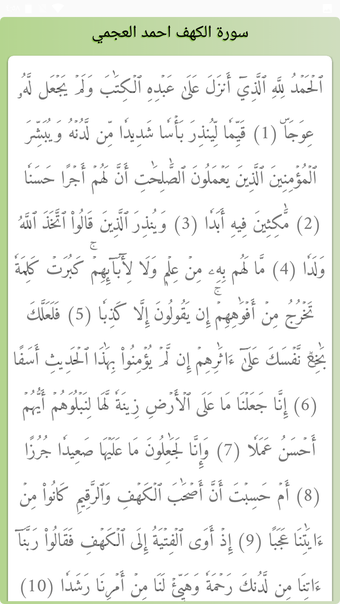 سورة الكهف احمد العجمي
ٱلۡحَمۡدُ لِلَّهِ ٱلَّذِيٓ أَنزَلَ عَلَىٰ عَبۡدِهِ ٱلۡكِتَٰبَ وَلَمۡ يَجۡعَل لَّهُۥ
عِوَجَاۜ (1) قَيِّمٗا لِّيُنذِرَ بَأۡسٗا شَدِيدٗا مِّن لَّدُنۡهُ وَيُبَشِّرَ
ٱلۡمُؤۡمِنِينَ ٱلَّذِينَ يَعۡمَلُونَ ٱلصَّٰلِحَٰتِ أَنَّ لَهُمۡ أَجۡرًا حَسَنٗا
(2) مَّٰكِثِينَ فِيهِ أَبَدٗا (3) وَيُنذِرَ ٱلَّذِينَ قَالُواْ ٱتَّخَذَ ٱللَّهُ
وَلَدٗا (4) مَّا لَهُم بِهِۦ مِنۡ عِلۡمٖ وَلَا لِأٓبَآئِهِمۡۚ كَبُرَتۡ كَلِمَةٗ
تَخۡرُجُ مِنۡ أَفۡوَٰهِهِمۡۚ إِن يَقُولُونَ إِلَّا كَذِبٗا (5) فَلَعَلَّكَ
بَٰخِعٞ نَّفۡسَكَ عَلَىٰٓ ءَاثَٰرِهِمۡ إِن لَّمۡ يُؤۡمِنُواْ بِهَٰذَا ٱلۡحَدِيثِ أَسَفًا
(6) إِنَّا جَعَلۡنَا مَا عَلَى ٱلۡأَرۡضِ زِينَةٗ لَّهَا لِنَبۡلُوَهُمۡ أَيُّهُمۡ
أَحۡسَنُ عَمَلٗا (7) وَإِنَّا لَجَٰعِلُونَ مَا عَلَيۡهَا صَعِيدٗا جُرُزًا
(8) أَمۡ حَسِبۡتَ أَنَّ أَصۡحَٰبَ ٱلۡكَهۡفِ وَٱلرَّقِيمِ كَانُواْ مِنۡ
ءَايَٰتِنَا عَجَبًا (9) إِذۡ أَوَى ٱلۡفِتۡيَةُ إِلَى ٱلۡكَهۡفِ فَقَالُواْ رَبَّنَآ
ءَاتِنَا مِن لَّدُنكَ رَحۡمَةٗ وَهَيِّئۡ لَنَا مِنۡ أَمۡرِنَا رَشَدٗا (10)